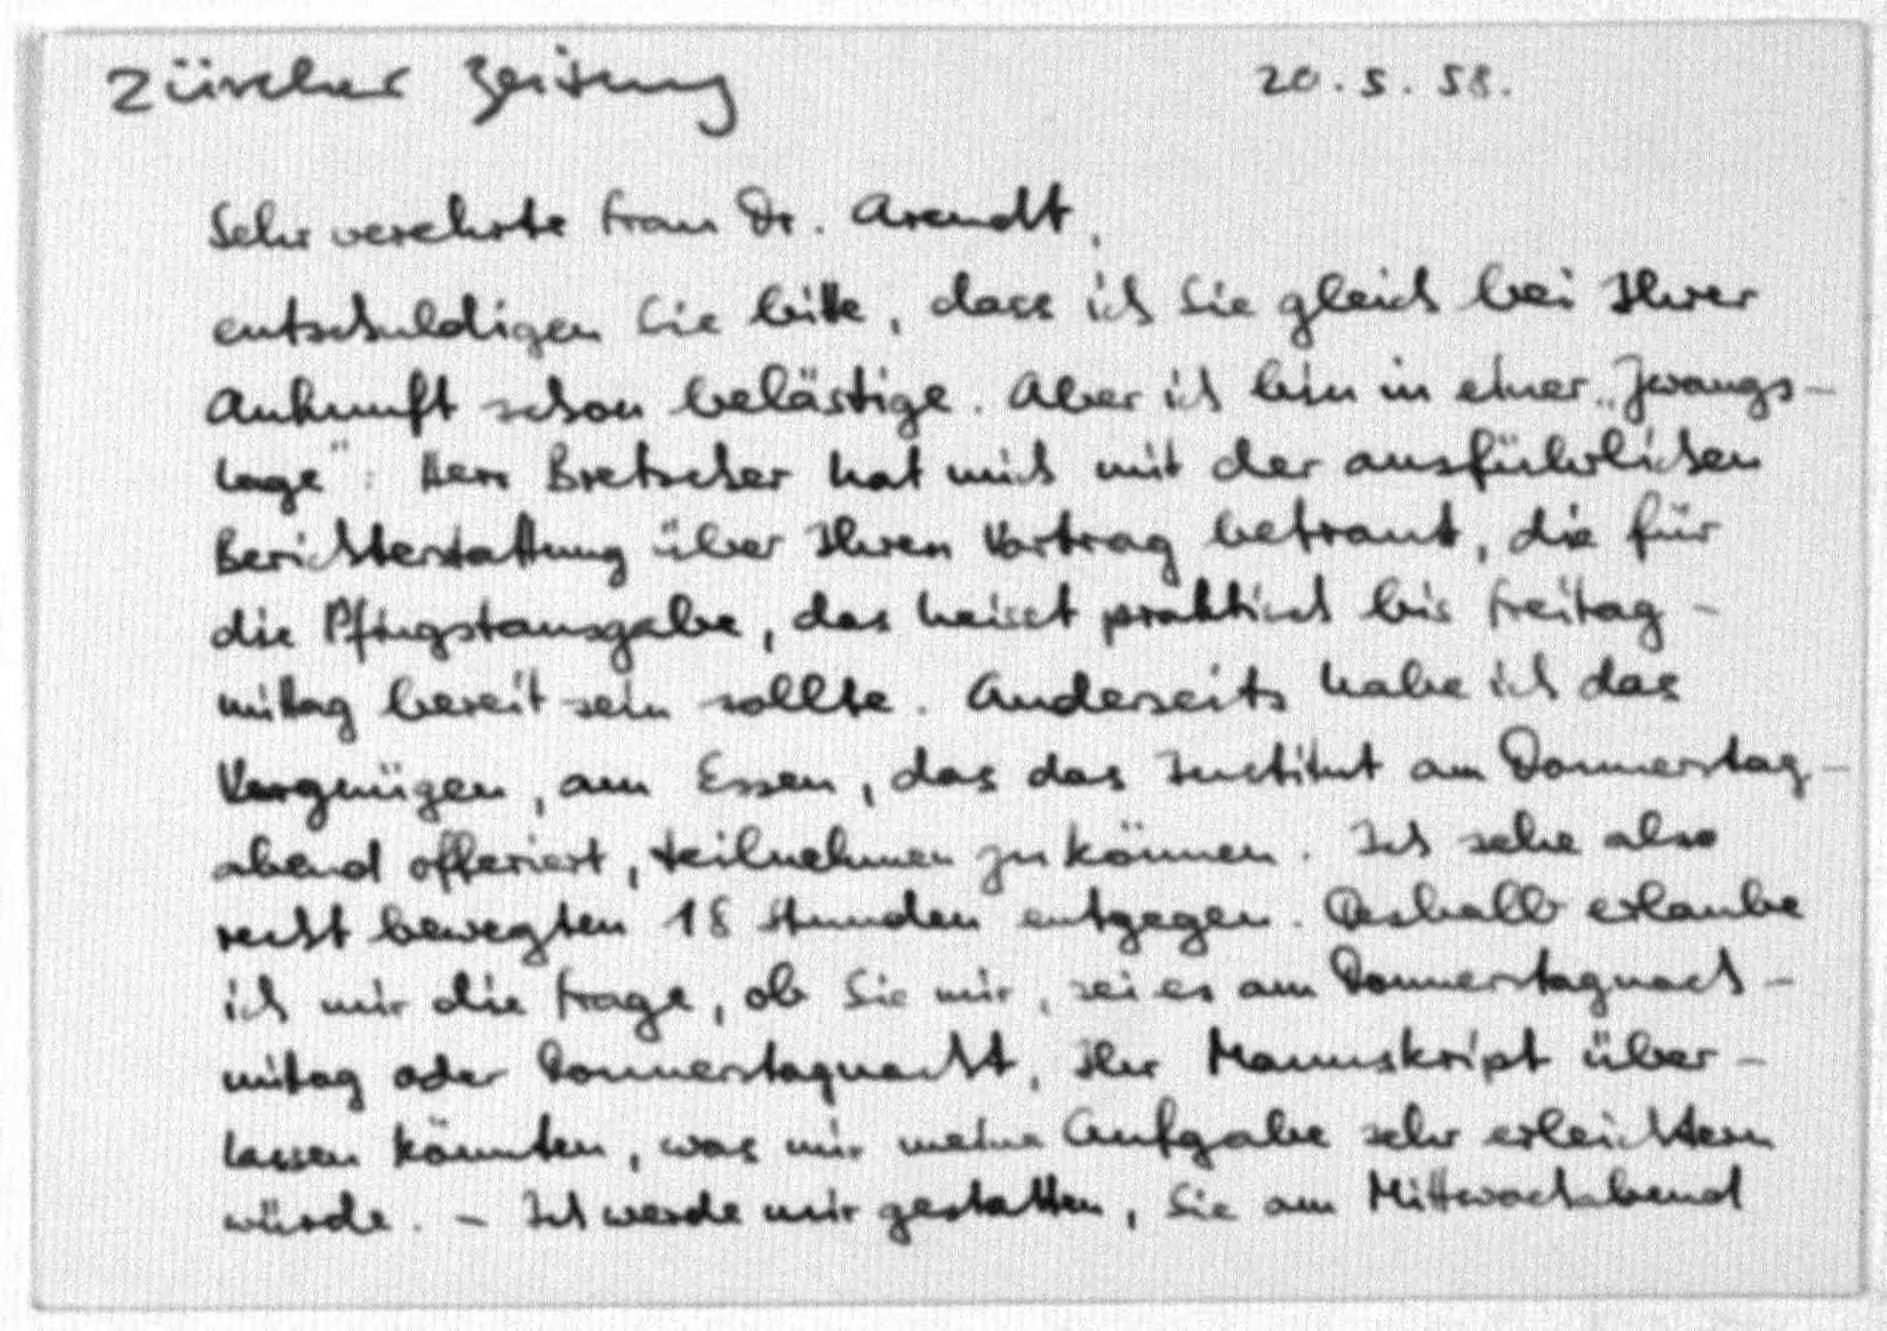 Zürcher Zeitung 20.5.58.
Sehr verehrte Frau Dr. Arendt,
entschuldigen Sie bitte, dass ich Sie gleich bei Ihrer
Ankunft schon belästige. Aber ich bin in einer „Zwangs-
lage": Herr Bretscher hat mich mit der ausführlichen
Berichterstattung über Ihren Vortrag betraut, die für
die Pfingstausgabe, das heisst praktisch bis Freitag-
mittag bereit sein sollte. Anderseits habe ich das
Vergnügen, am Essen, das das Institut am Donnerstag-
abend offeriert, teilnehmen zu können. Ich sehe also
recht bewegten 18 Stunden entgegen. Deshalb erlaube
ich mir die Frage, ob Sie mir, sei es am Donnerstagnach-
mitag oder Donnerstagnacht, Ihr Manuskript über-
lassen könnten, was mir meine Aufgabe sehr erleichtern
würde. - Ich werde mir gestatten, Sie am Mittwochabend